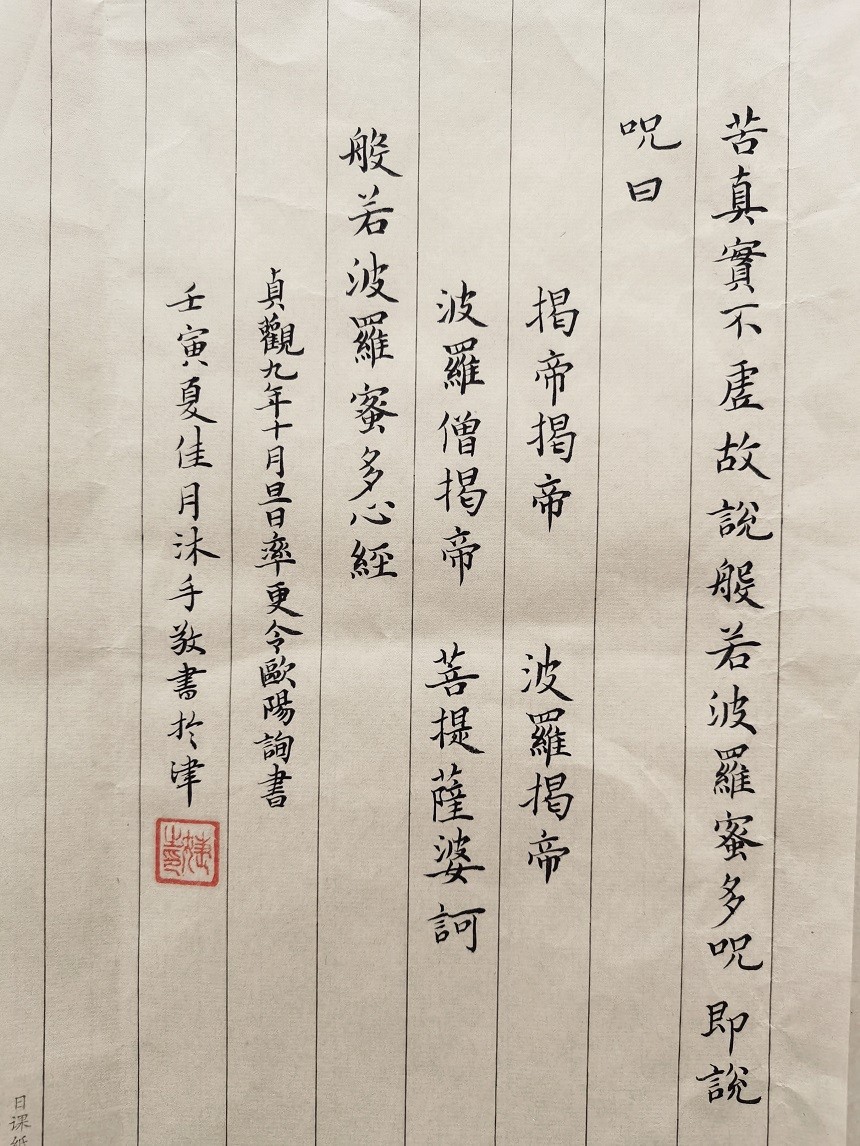 苦真實不虛故說般若波羅蜜多呪即說
呪曰
揭帝揭帝　波羅揭帝
波羅僧揭帝　菩提薩婆訶
般若波羅蜜多心經
貞觀九年十月旦日率更令歐陽詢書
壬寅夏佳月沐手敬書於津
日课纸